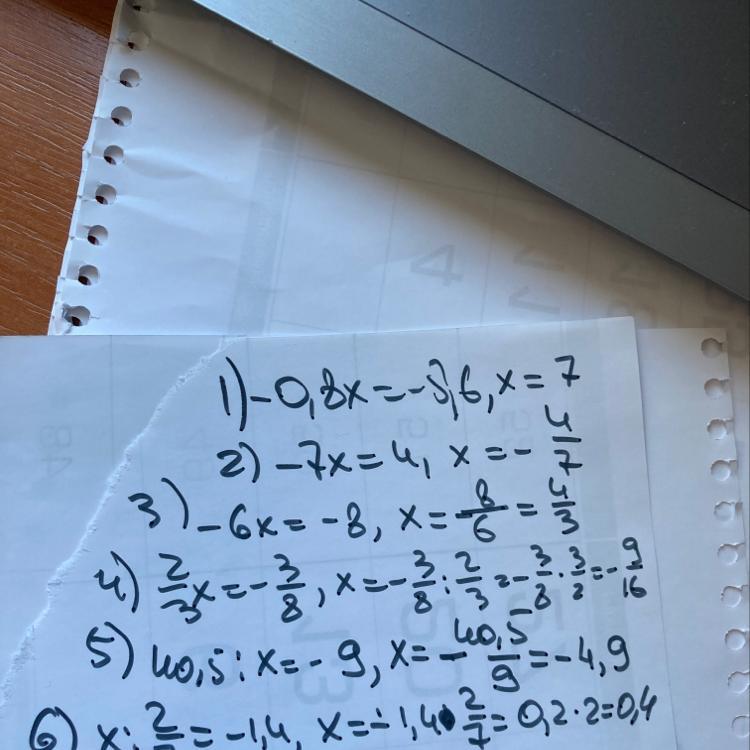 1) -0,8x = -5,6, x = 7
2) -7x = 4, x = - 4/7
3) -6x = -8, x = 8/6 = 4/3
4) 2/3 x = - 3/8, x = - 3/8 : 2/3 = - 3/8 · 3/2 = - 9/16
5) 40,5 : x = - 9, x = - 40,5/9 = -4,9
6) x : = -1,4, x = -1,4 · 2/7 = 0,2 · 2 = 0,4